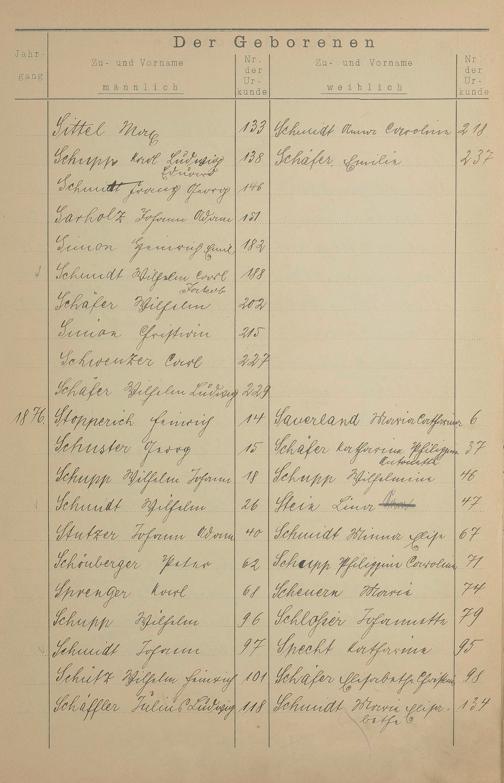 Der Geborenen
Jahr-
gang
Zu- und Vorname
männlich
Nr.
der
Ur-
kunde
Zu- und Vorname
weiblich
Nr.
der
Ur-
kunde
Sittel Max 133 Schmidt Anna Caroline 218
Schupp Karl Ludwig 138 Schäfer Emilie 237
Eduard
Schmidt Franz Georg 146
Sarholz Johann Adam 151
Simon Heinrich Emil 182
Schmidt Wilhelm Carl 188
Jakob
Schäfer Wilhelm 202
Simon Christian 215
Schwenzer Carl 227
Schäfer Wilhelm Ludwig 229
1876. Stopperich Heinrich 14 Sauerland Maria Catharina 6
Schuster Georg 15 Schäfer Katharina Philippine 37
Antonetta
Schupp Wilhelm Johann 18 Schupp Wilhelmine 46
Schmidt Wilhelm 26 Stein Lina 47
Stutzer Johann Adam 40 Schmidt Minna Elise 67
Schönberger Peter 62 Schupp Philippine Caroline 71
Sprenger Karl 68 Scheuern Maria 74
Schupp Wilhelm 96 Schlosser Johannette 79
Schmidt Johann 97 Specht Katharine 95
Schütz Wilhelm Heinrich 101 Schäfer Elisabethe Christine 98
Schäffler Julius Ludwig 118 Schmidt Maria Elisa- 134
bethe